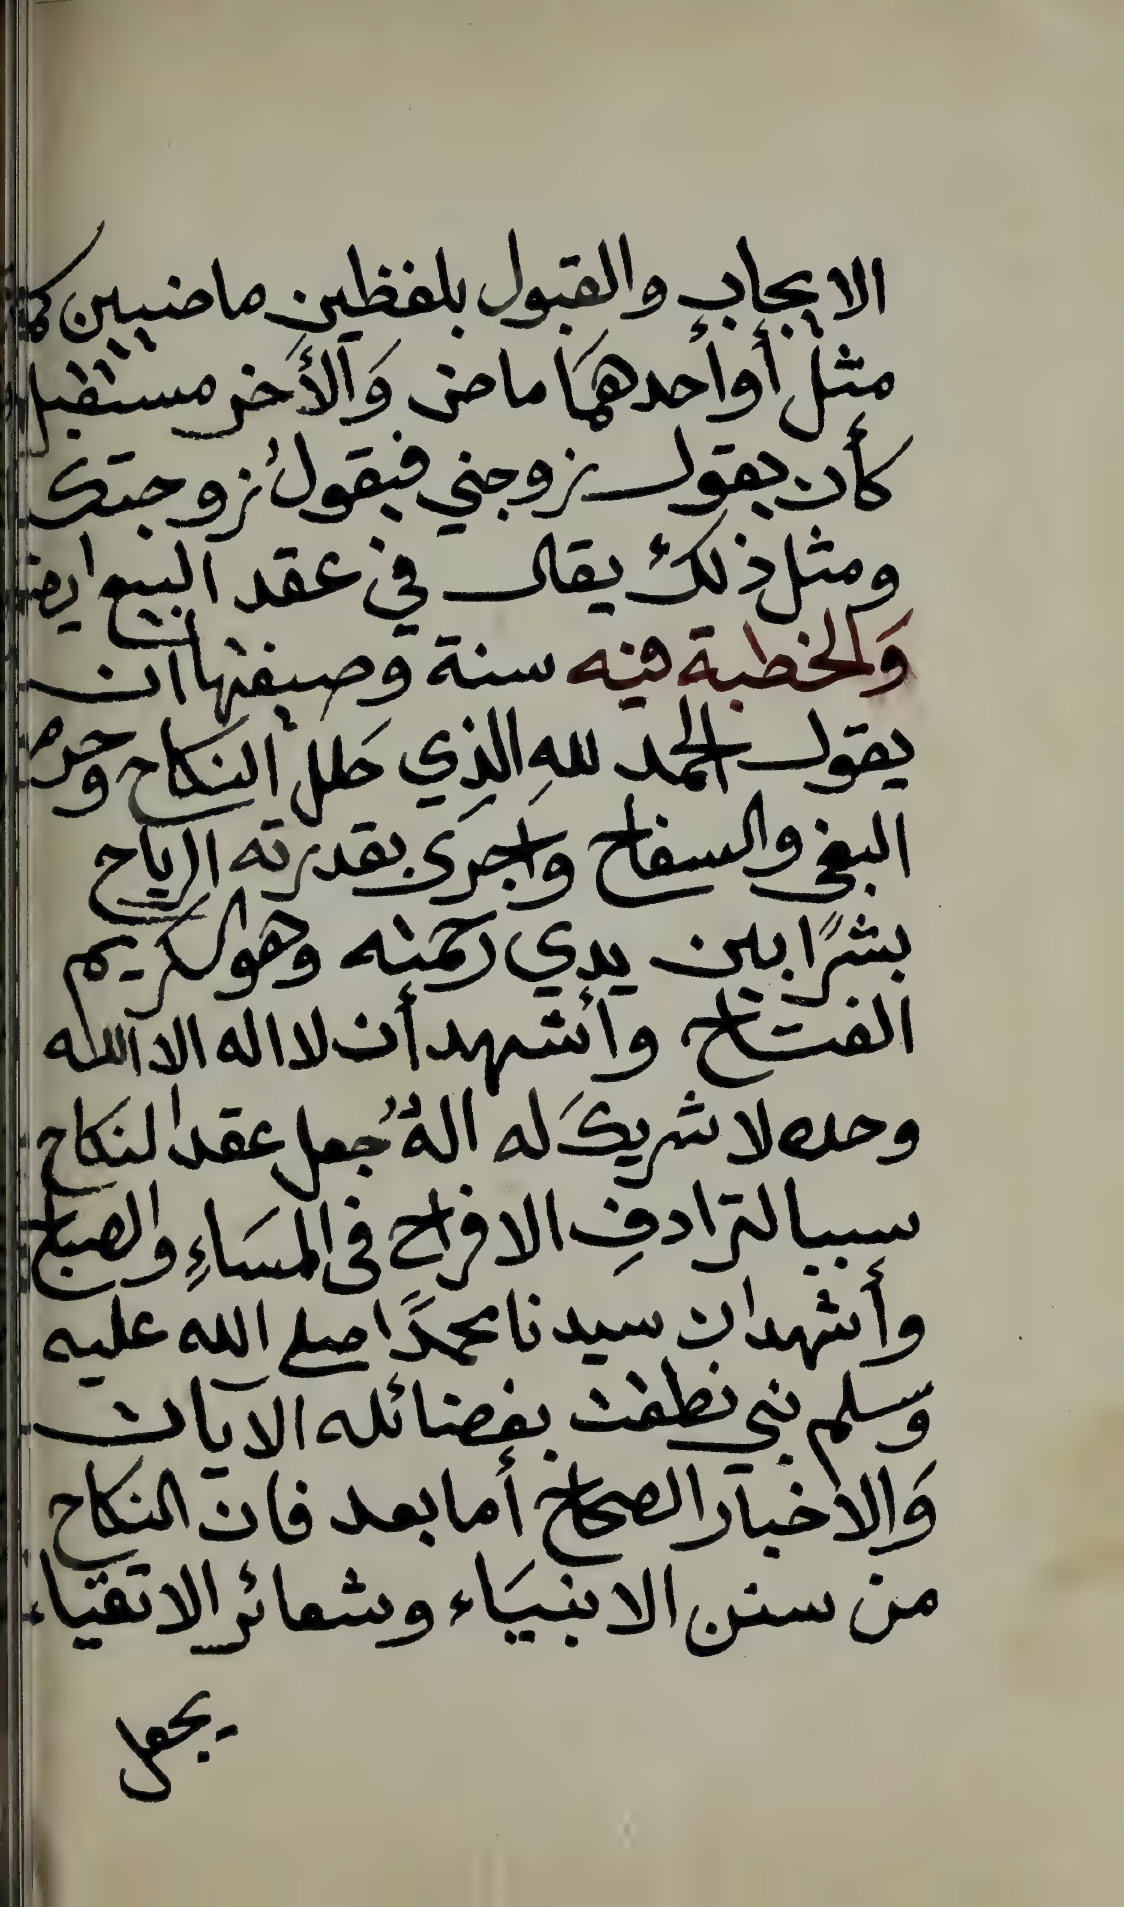 الايجاب والقبول بلفظين ماضيين كما
مثل أوأحدهمَا ماض وَالأَخر مستقبل
كأن يقول زوجني فيقولُ زوجتك
ومثل ذلك يقال في عقد البيع ايضا
وَالخطبة فيه سنة وصيغتها ان
يقول الحمد للهِ الذِي حَلل النكاح وحرم
البغى والسفاح واجرَى بقدرته الرياح
بشرًا بين يدي رحمته وهوالكريم
الفتاح وأشهد أن لااله الاالله
وحده لا شريكَ له الهُ جعل عقدالنكاح
سببا لترادفِ الافراح فى المسَاءِ والصباح
وأشهدان سيدنا محمدًا صلى الله عليه
وسلم نبي نطقت بفضائله الآيات
وَالاخبار الصحاح أما بعد فان النكاح
من سنن الانبيَاء وشعائر الاتقياء
يجعل